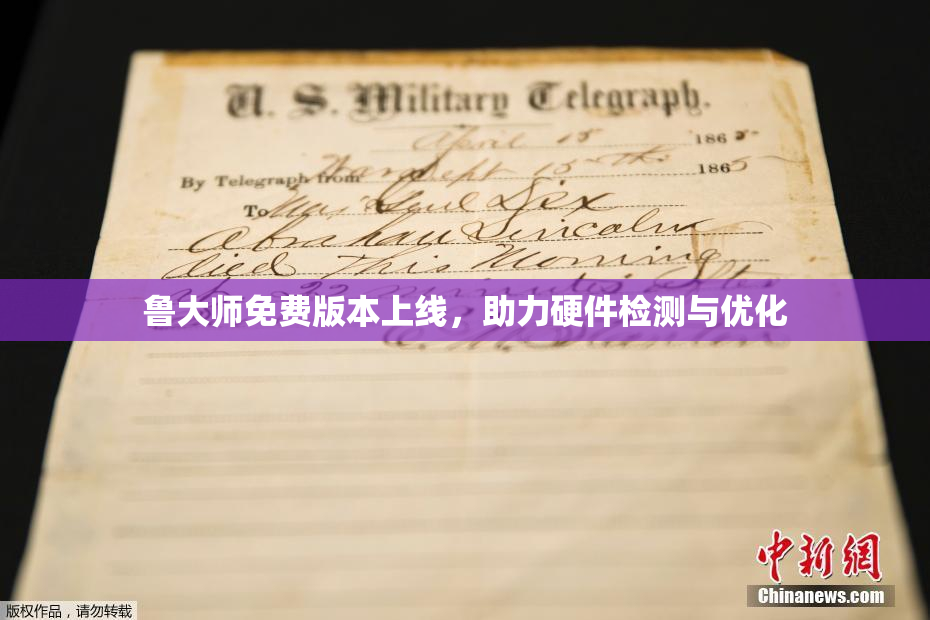 U. S. Military Telegraph.
April 15 1865
By Telegraph from War Dept 15th 1865
To Maj Genl Dix
Abraham Lincoln
died This Morning
at 22 minutes after
鲁大师免费版本上线，助力硬件检测与优化
E. M. Stanton
中新网
Chinanews.com
版权作品，请勿转载